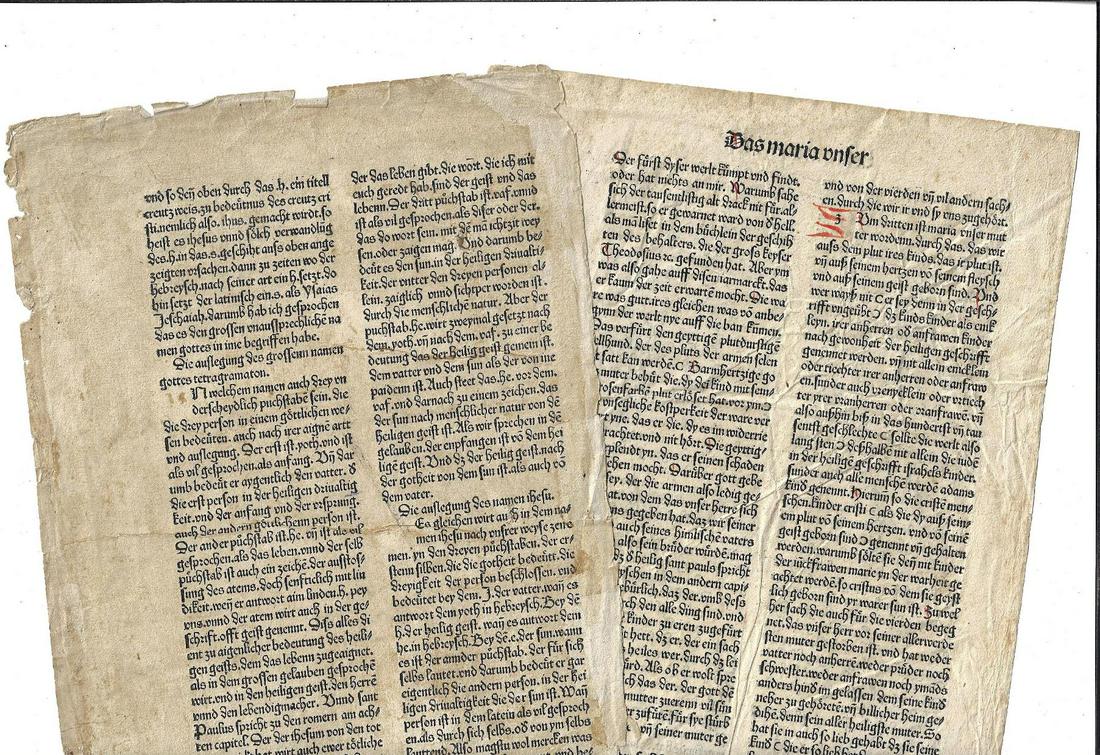 vnd so deȳ oben durch das .h. ein titell
creutz weis. zu bedeütnus des creutz cri
sti. nemlich also. ihus. gemacht wirdt. so
heist es ihesus vnnd sölch verwandlüg
des .h. in das .s. geschiht auſs oben ange
zeigten vrsachen. dann zu zeiten wo der
hebreysch. nach seiner art ein .h. setzt. do
hin setzt der latinisch ein .s. als Ysaias
Jeschaiah. darumb hab ich gesprochen
das es den grossen vnaussprechlichē na
men gottes in ime begriffen habe.
Die auslegung des grossenn namen
gottes tetragramaton.
N welchem namen auch drey vn
derscheydlich puchstabē sein. die
die drey person in einem göttlichen we-
sen bedeüten. auch nach irer aignē artt
vnd auslegung. Der erst ist .yoth. vnd ist
als vil gesprochen. als anfang. Vn̄ dar
umb bedeüt er aygentlich den vatter. d̄
die erst person in der heiligen driualtig
keit. vnd der anfang vnd der vrsprung.
auch der andern götlichenn person ist.
Der ander püchstab ist .he. vn̄ ist als vil
gesprochen. als das leben. vnnd der selb
püchstab ist auch ein zeichē. der ausstos-
sung des atems. doch senfftlich mit lin
dikeit. weȳ er antwort aim linden .h. pey
vns. vnnd der atem wirt auch in der ge-
schrifft. offt geist genennt. Diss alles di
ent zu aigenlicher bedeutung des heili-
gen geists. dem das lebenn zugeaignet.
als in dem grossen gelauben gesprochē
wirt. vnd in den heiligen geist. den herrē
vnnd den lebendigmacher. Vnnd sant
Paulus spricht zu den romern am ach-
ten capitel. Der der ihesum von den tot
hat wirt auch ewer tötliche
der das leben gibt. die wort. die ich mit
euch geredt hab. sind der geist vnd das
lebenn. Der dritt püchstab ist .vaf. vnnd
ist als vil gesprochen. als diser oder der.
das do wort sein. mit dē mā ichtzit wey
sen. oder zaigen mag. Vnd darumb be-
deüt es den sun. in der heiligen driualti-
keit. der vnter den dreyen personen al-
lein. zaiglich vnnd sichtper worden ist.
durch die menschliche natur. Aber der
puchstab .he. wirt zweymal gesetzt nach
dem .yoth. vn̄ nach dem .vaf. zu einer be
deutung das der heilig geist gemein ist.
dem vatter vnd dem sun als der von ine
paiden ist. Auch steet das .he. vor dem.
vaf. vnd darnach zu einem zeichen. das
der sun nach menschlicher natur von dē
heiligen geist ist. Als wir sprechen in dē
gelauben. der enpfangen ist vō dem hei
ligē geist. Vnd dz der heilig geist. nach
der gotheit von dem sun ist. als auch vō
dem vater.
Die auslegung des namen ihesu.
Ea gleichen wirt auch in dem na-
men ihesu nach vnser weyse zeyn
men. yn den dreyen püchstaben. der er-
stenn silben. die die gotheit bedeütt. die
dreyigkeit der person beschlossen. vnd
bedeütet bey dem .J. der vatter. waȳ es
antwort dem yoth in hebreysch. Bey dē
h. der heilig geist. waȳ es antwort dem
he. in hebreysch. Bey dē .e. der sun. wann
es ist der annder püchstab. der für sich
selbs lautet. vnd darumb bedeüt er gar
eigentlich die andern person. in der hei
ligen driualtigkeit die der sun ist. Waȳ
person ist in dem latein als vil gesproch
en. als durch sich selbs. od von ym selbs
lauttend. Also magstu wol mercken was
Das maria vnser
Der fürst dyser werlt kūmpt vnd findt.
oder hat nichts an mir. Warumb sahe
sich der tausentlistig alt drack nit für. al-
lermeist. so er gewarnet ward von d̄ hell.
als mā lißt in dem büchlein der geschih
ten des behalters. die der groß keyser
Theodosius ꝛc. gefunden hat. Aber ym
was also gahe auff disen iarmarckt. das
er kaum der zeit erwarten mocht. Die wa
re was gutt. ires gleichen was vō anbe-
gynn der werlt nye auff die ban kūmen.
Das verfürt den geyttigē plutdurstigē
ellhund. der des pluts der armen selen
t satt kan werdē. C Barmhertzige go
muter behüt die. dy dei kind mit sein-
osenfarbē plut erlöset hat. vor ym. Ɔ
vnsegliche kostperkeit der ware ver
t yne. das er die. dy es im widerrie
rachtet. vnd nit hört. Die geyttig-
plendt yn. das er seinen schaden
ehen mocht. Darüber gott gebe
sey. der die armen also ledig ge
at. von dem das vnser herre sich
ns gegeben hat. daz wir seiner
auch seines himlischē vaters
also sein brüder würdē. mag
dz d̄ heilig sant pauls spricht
yschen in dem andern capi-
gebürlich. daz der. vmb dess
ch den alle ding sind. vnd
kinder zu eren zugefürt
t hett. dz er. der ein sach
heiles wer. durch dz lei
würd. Als ob er wolt spre
ch das der. der gott dē
muter zueren vil sün
er zufüre. für sye stürb
vn̄ seiner muter ge
vnd von der vierden vn̄ vil andern sach-
en. durch die wir ir vnd sy vns zugehört.
3 Vm dritten ist maria vnser mut
ter wordenn. durch das. das wir
auſs dem plut ires kinds. das ir plut ist.
vn̄ auß seinem hertzen vō seinem fleysch
vnd auß seinem geist geborn sind. Vnd
wer wayß nit C er sey denn in der gesch-
rifft vngeübt Ɔ dz kinds kinder als enik
leyn. irer anherren od anfrawen kinder
nach gewonheit der heiligen geschrifft
genennet werden. vn̄ nit allein enicklein
oder tiechter irer anherren oder anfraw
en. sunder auch vrenycklein oder vrtiech
ter yrer vranherren oder vranfrawē. vn̄
also außhin biß in das hundertst vn̄ tau
sentst geschlechte C sollte die werlt also
lang sten Ɔ deßhalbē nit allein die iudē
in der heiligē geschafft israhels kinder.
sunder auch alle menschē werdē adams
kind genennt. Hierum so die cristē men-
schen. kinder cristi C als die dy auß sein-
em plut vō seinem hertzen. vnd vō seinē
geist geborn sind Ɔ genennt vn̄ gehalten
werden. warumb soltē sie deȳ nit kinder
der iückfrawen marie yn der warheit ge
achtet werdē. so cristus vō dem sie geyst
lich geborn sind yr warer sun ist. Zuwel
her sach die auch für die vierden begeg
net. das vnser herr vor seiner allerwerde
sten muter gestorben ist. vnd hat weder
vatter noch anherrē. weder prüder noch
schwester. weder anfrawen noch ymāds
anders hind im gelassen dem seine kind
neher zu gehöretē. vn̄ billicher heim ge-
dihē. denn sein aller heiligste muter. So
hat sie in auch so lieb gehabt dz sie seine
kind C die er so lieb hett